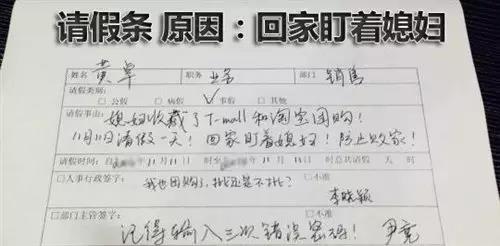 请假条 原因：回家盯着媳妇
姓名 黄卓 职务 业务 部门 销售
请假类别：
□公假 □病假 ☑事假 □其他
请假事由：媳妇收藏了T-mall和淘宝团购！
11月11日请假一天！回家盯着媳妇！防止败家！
请假时间：自 年11月11日 时至 年11月11日 时总共请假 天 时
□人事行政签字： □不准
我也团购了，批还是不批？
李晓颖
□部门主管签字： □不准
记得输入三次错误密码！ 尹亮